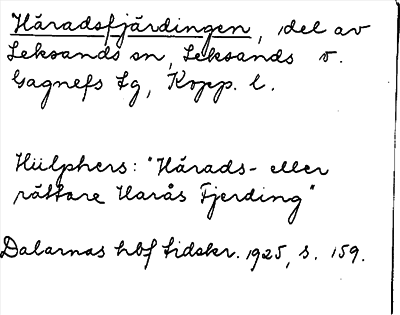 Häradsfjärdingen, del av
Leksands sn, Leksands o.
Gagnefs tg, Kopp. l.
Hülphers: "Härads- eller
rättare Harås Fjerding"
Dalarnas hbf tidskr. 1925, s. 159.